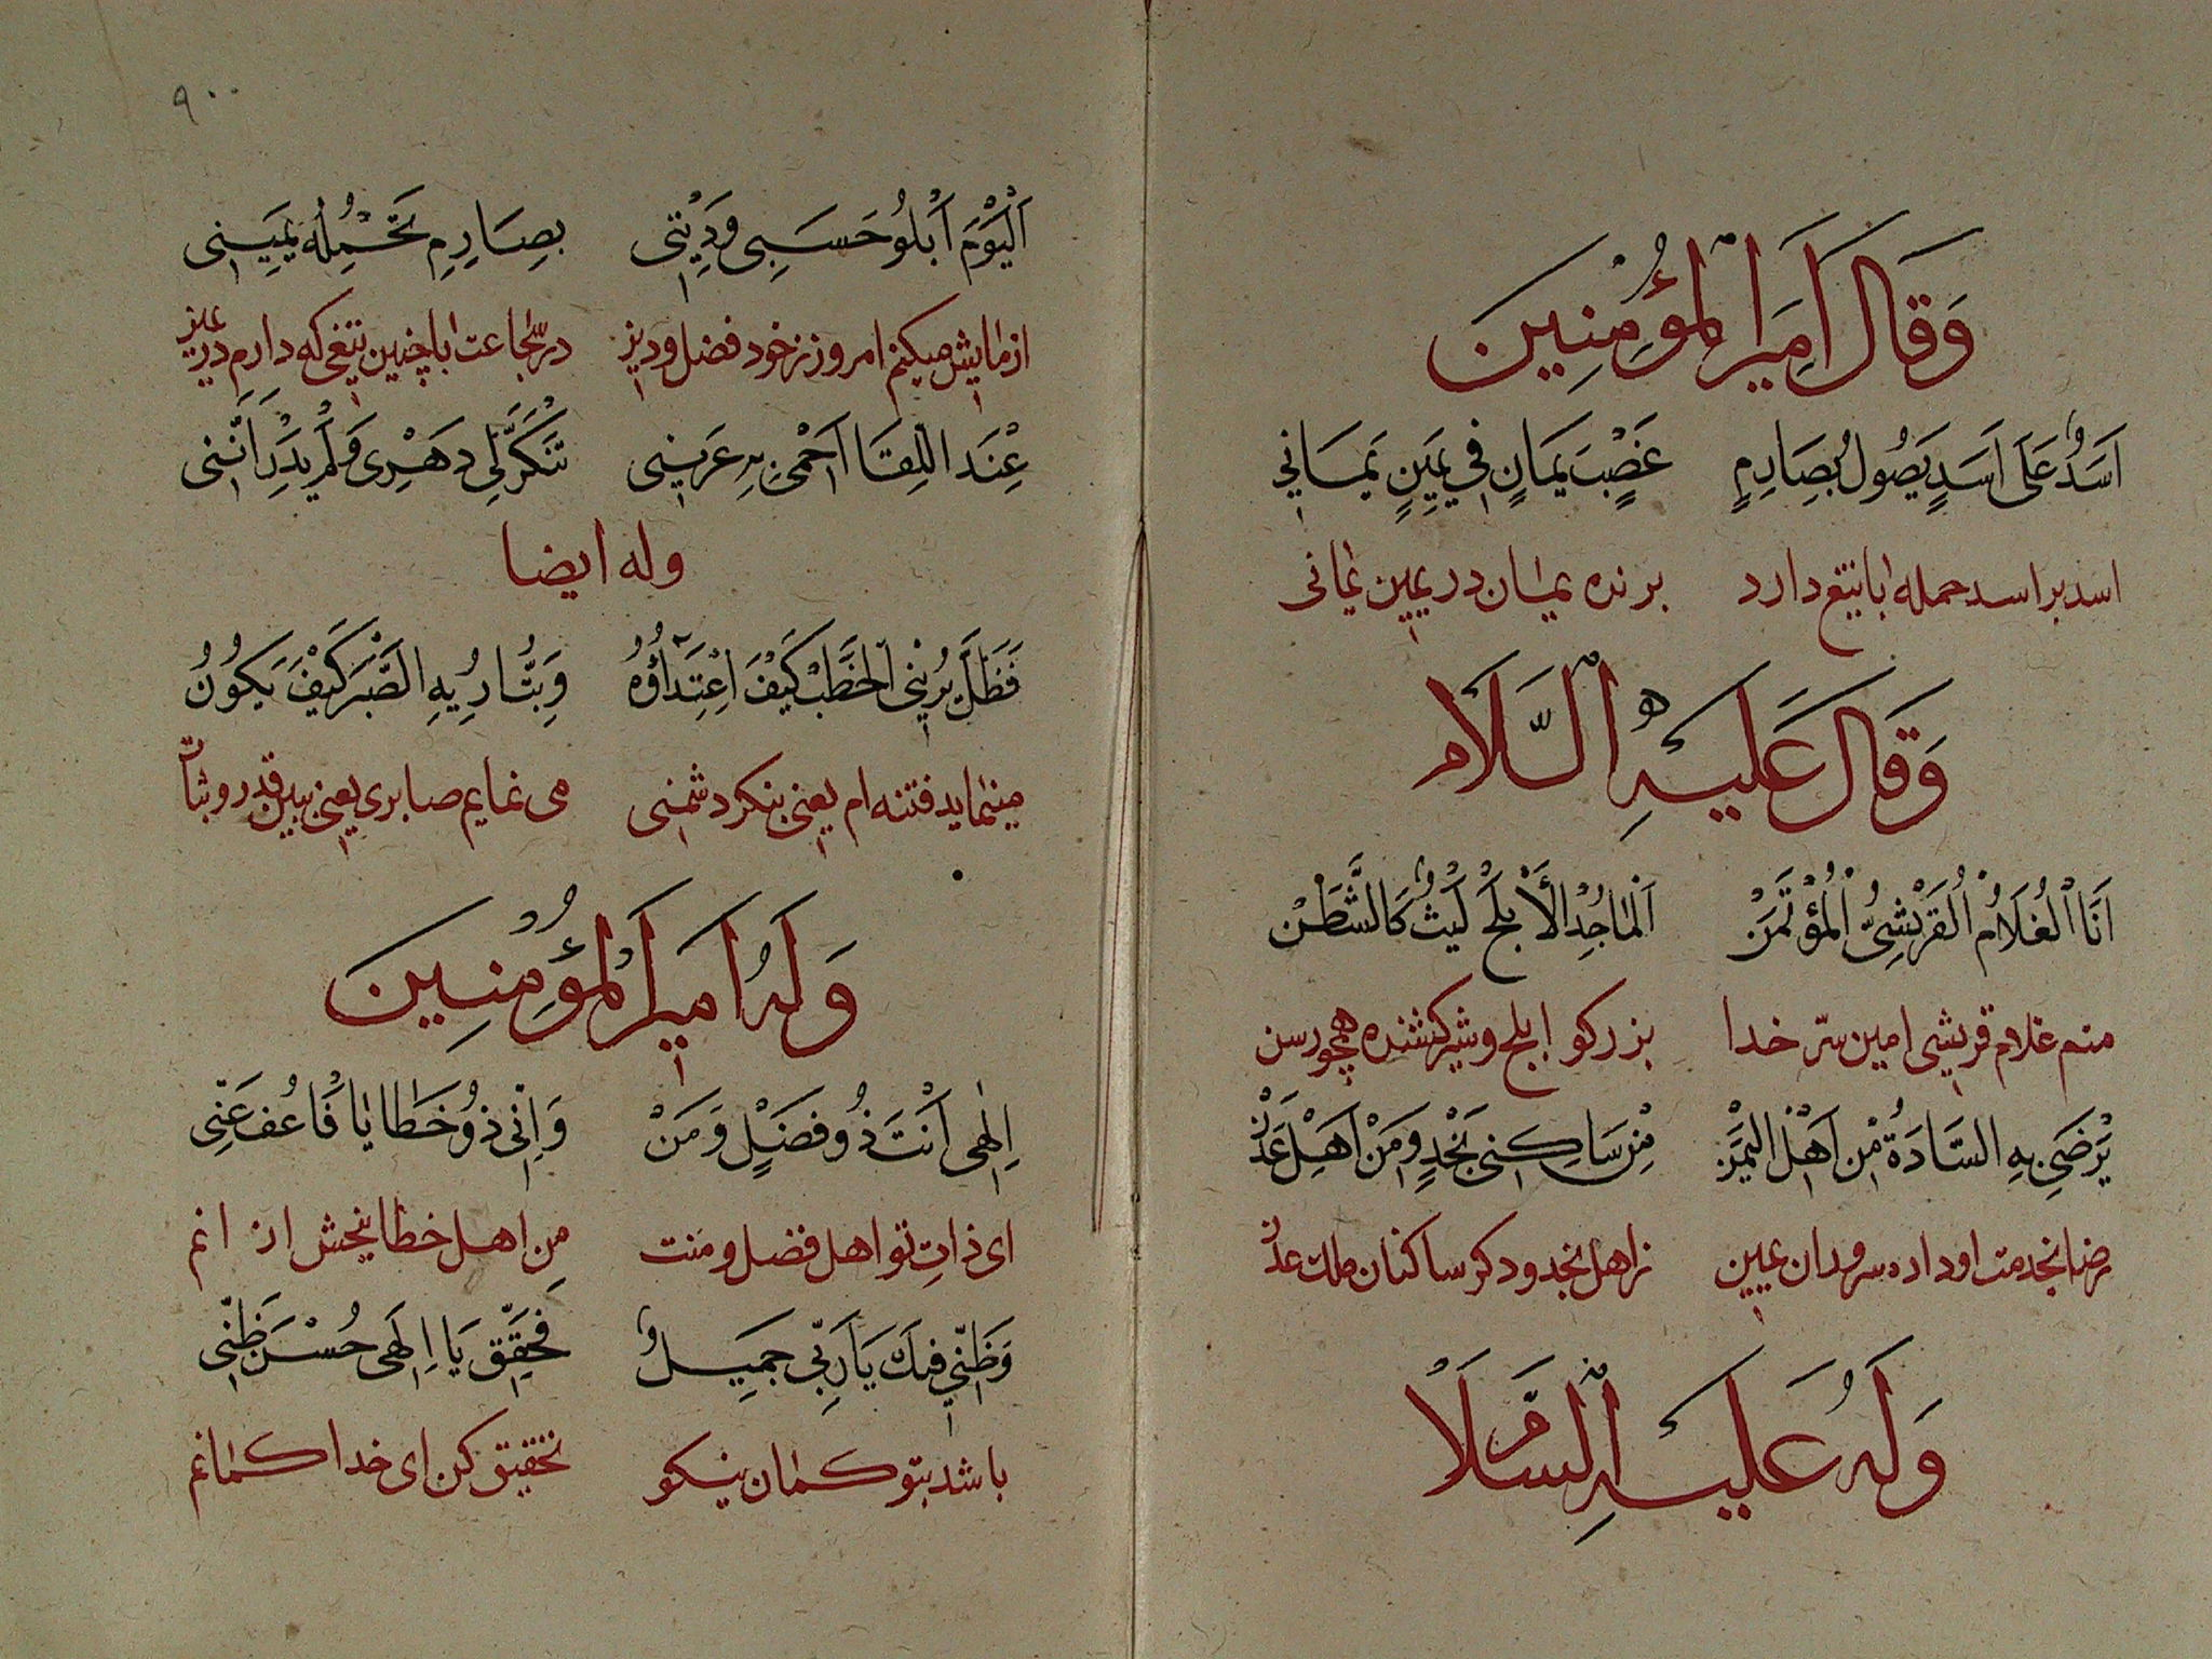 وَقَالَ اَمِيرَ الْمُؤْمِنِينَ
اَسَدٌ عَلَى اَسَدٍ يَصُولُ بِصَارِمٍ عَضْبٍ يَمَانٍ فِي يَمِينٍ يَمَانِي
اسد بر اسد حمله با تیغ دارد برنده یمان در یمین یمانی
وَقَالَ عَلَيْهِ السَّلَام
اَنَا الْغُلَامُ الْقُرَيْشِيُّ الْمُؤْتَمَنْ اَلْمَاجِدُ الْأَبْلَجُ لَيْثٌ كَالشَّطَنْ
منم غلام قریشی امین سرّ خدا بزرکو ابلج و شیر کشنده همچو رسن
يَرْضَى بِهِ السَّادَةُ مِنْ اَهْلِ الْيَمَنْ مِنْ سَاكِنِي نَجْدٍ وَمِنْ اَهْلِ عَدَنْ
رضا بخدمت او داده سروران یمین ز اهل نجد و دکر ساکنان ملک عدن
وَلَهُ عَلَيْهِ السَّلَامْ
۹۰۰
اَلْيَوْمَ اَبْلُو حَسَبِي وَدِينِي بِصَارِمٍ تَحْمِلُهُ يَمِينِي
ازمایش میکنم امروز ز خود فضل و دین در شجاعت با چنین تیغی که دارم در یمین
عِنْدَ اللِقَا اَحْمِي بِهِ عَرِينِي تَنَكَّرَ لِي دَهْرِي وَلَمْ يَدْرِ اَنَّنِي
وله ایضا
فَظَلَّ يُرِينِي الْخَطْبَ كَيْفَ اِعْتِدَاؤُهُ وَبِتُّ اُرِيهِ الصَّبْرَ كَيْفَ يَكُونُ
مینماید فتنه ام یعنی بنکر دشمنی می نمایم صابری یعنی ببین قدر و ثبات
وَلَهُ اَمِيرَ الْمُؤْمِنِينَ
اِلٰهِي اَنْتَ ذُو فَضْلٍ وَمَنْ وَاِنِّي ذُو خَطَايَا فَاعُفُ عَنِّي
ای ذاتِ تو اهل فضل و منت من اهل خطا ببخش از انم
وَظَنِّي فِيكَ يَا رَبِّي جَمِيلٌ فَحَقِّقْ يَا اِلَهِي حُسْنَ ظَنِّي
باشد بتو کمان نیکو تحقیق کن ای خدا کمانم